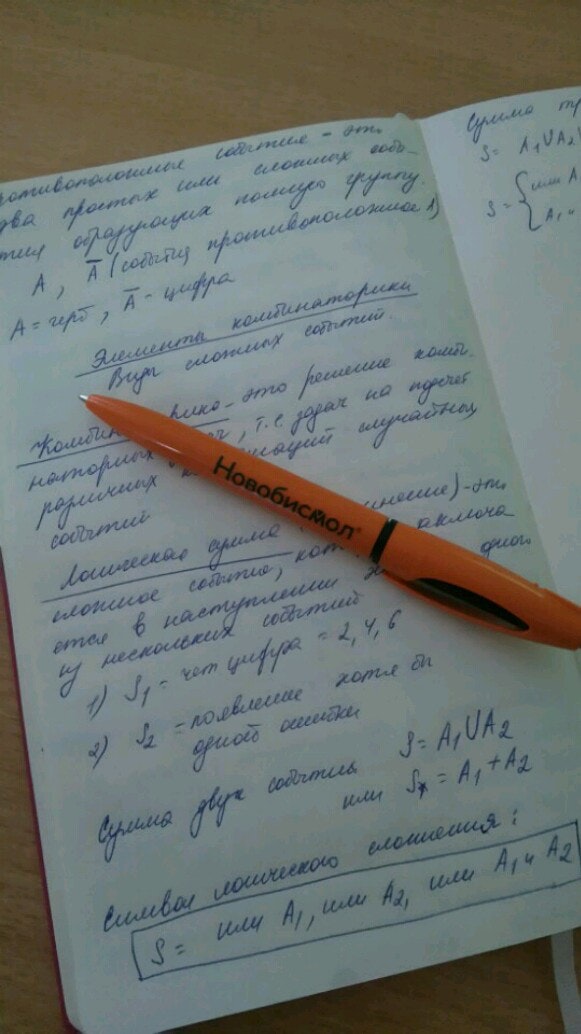 ротивоположные события - это
два простых или сложных собы-
тия образующих полную группу.
A, Ā (событие противоположное A)
A = герб, Ā - цифра
Элементы комбинаторики
Виды сложных событий.
Комбин рика - это решение комби-
наторных ч, т.е. задач на подсчет
различных аций случайных
событий
Логическая сумма динение) - это
сложное событие, кот заключа
ется в наступлении одного
из нескольких событий
1) S₁ = чет цифра = 2, 4, 6
2) S₂ = появление хотя бы
одной ошибки
Сумма двух событий S = A₁UA₂
или S = A₁ + A₂
Символ логического сложения:
S = или A₁, или A₂, или A₁ и A₂
Новобисмол®
Сумма тр
S = A₁UA₂U
S = { или A
A₁ и